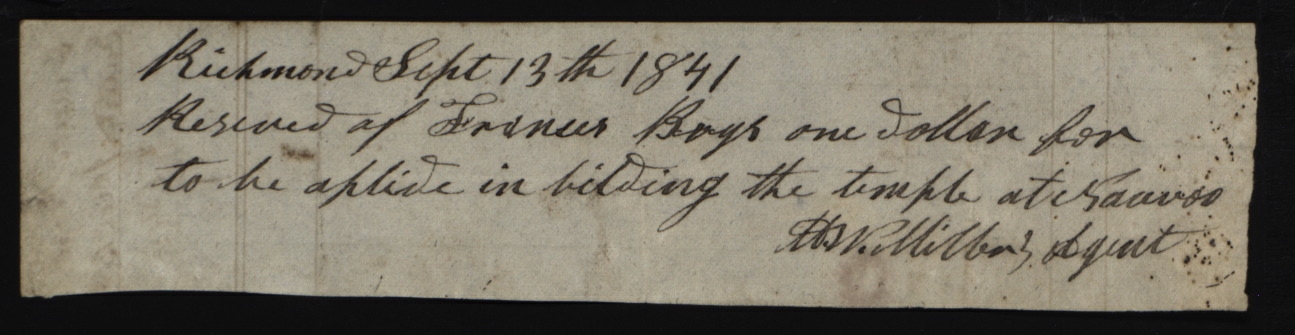 Richmond Sept 13th 1841
Reseived of Franses Boys one dollar for
to be aplide in bilding the temple at Nauvoo
H W. Miller, Agent